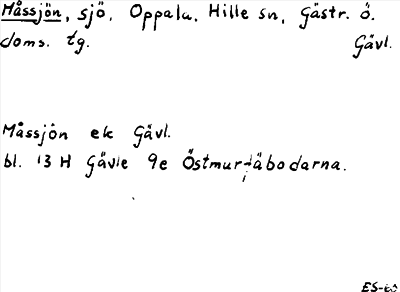 Måssjön, sjö, Oppala, Hille sn, Gästr. ö.
doms. tg. Gävl.
Måssjön ek Gävl.
bl. 13 H Gävle 9e Östmurjäbodarna.